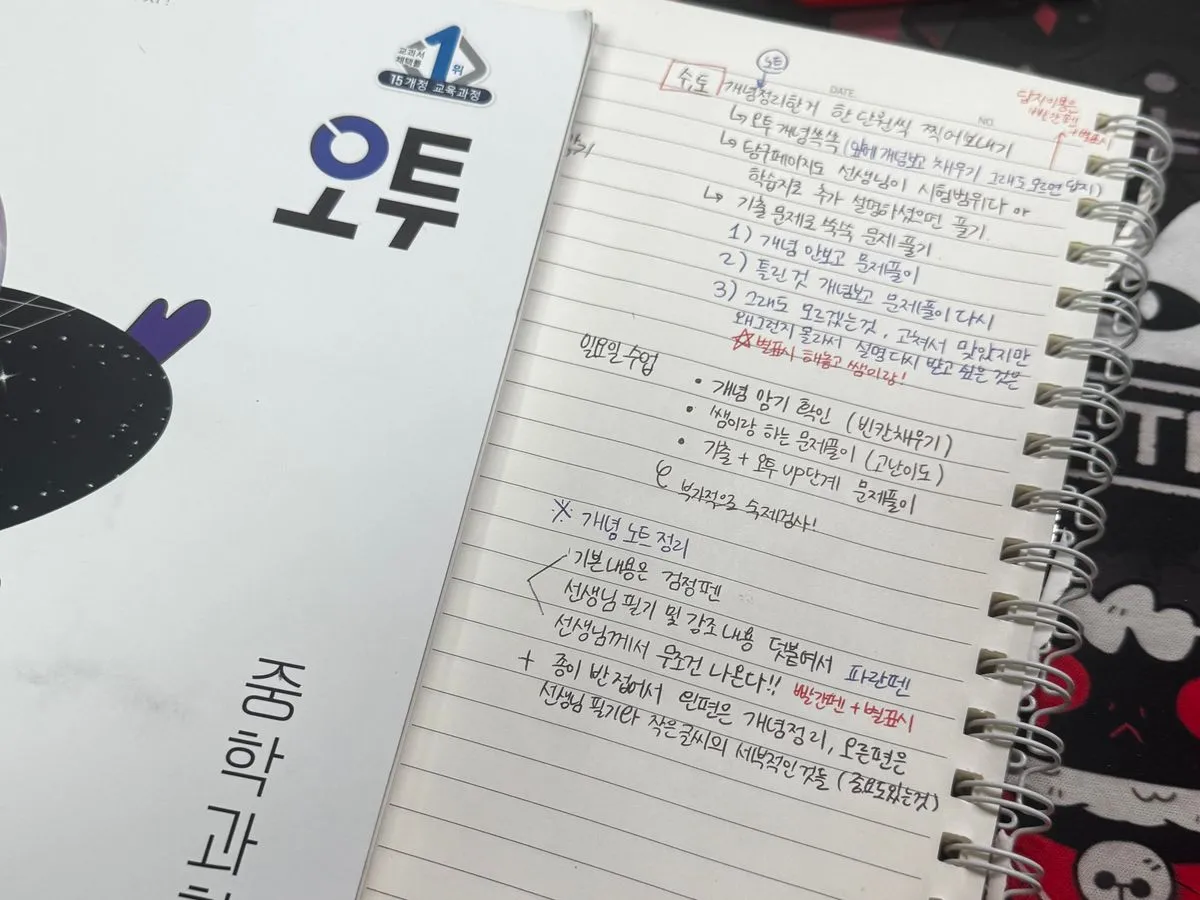 교과서
채택률
1위
15개정 교육과정
오투
중학과
노트
DATE
NO.
수, 토 개념정리한거 한 단원씩 찍어보내기
답지이용은
빨간펜
+별표시
↳ 오투 개념쏙쏙 (앞에 개념보고 채우기 그래도 모르면 답지)
↳ 탐구페이지도 선생님이 시험범위다 or
학습지로 추가 설명하셨으면 풀기.
↳ 기출 문제로 쑥쑥 문제 풀기.
1) 개념 안보고 문제풀이
2) 틀린 것 개념보고 문제풀이 다시
3) 그래도 모르겠는것, 고쳐서 맞았지만
왜그런지 몰라서 설명 다시 받고 싶은 것은
☆별표시 해놓고 쌤이랑!
일요일 수업
• 개념 암기 확인 (빈칸채우기)
• 쌤이랑 하는 문제풀이 (고난이도)
• 기출 + 오투 up단계 문제풀이
부가적으로 숙제검사!
※ 개념 노트 정리
기본내용은 검정펜
선생님 필기 및 강조 내용 덧붙여서 파란펜
선생님께서 무조건 나온다!! 빨간펜 + 별표시
+ 종이 반 접어서 왼편은 개념정리, 오른편은
선생님 필기와 작은글씨의 세부적인것들 (중요도있는것)